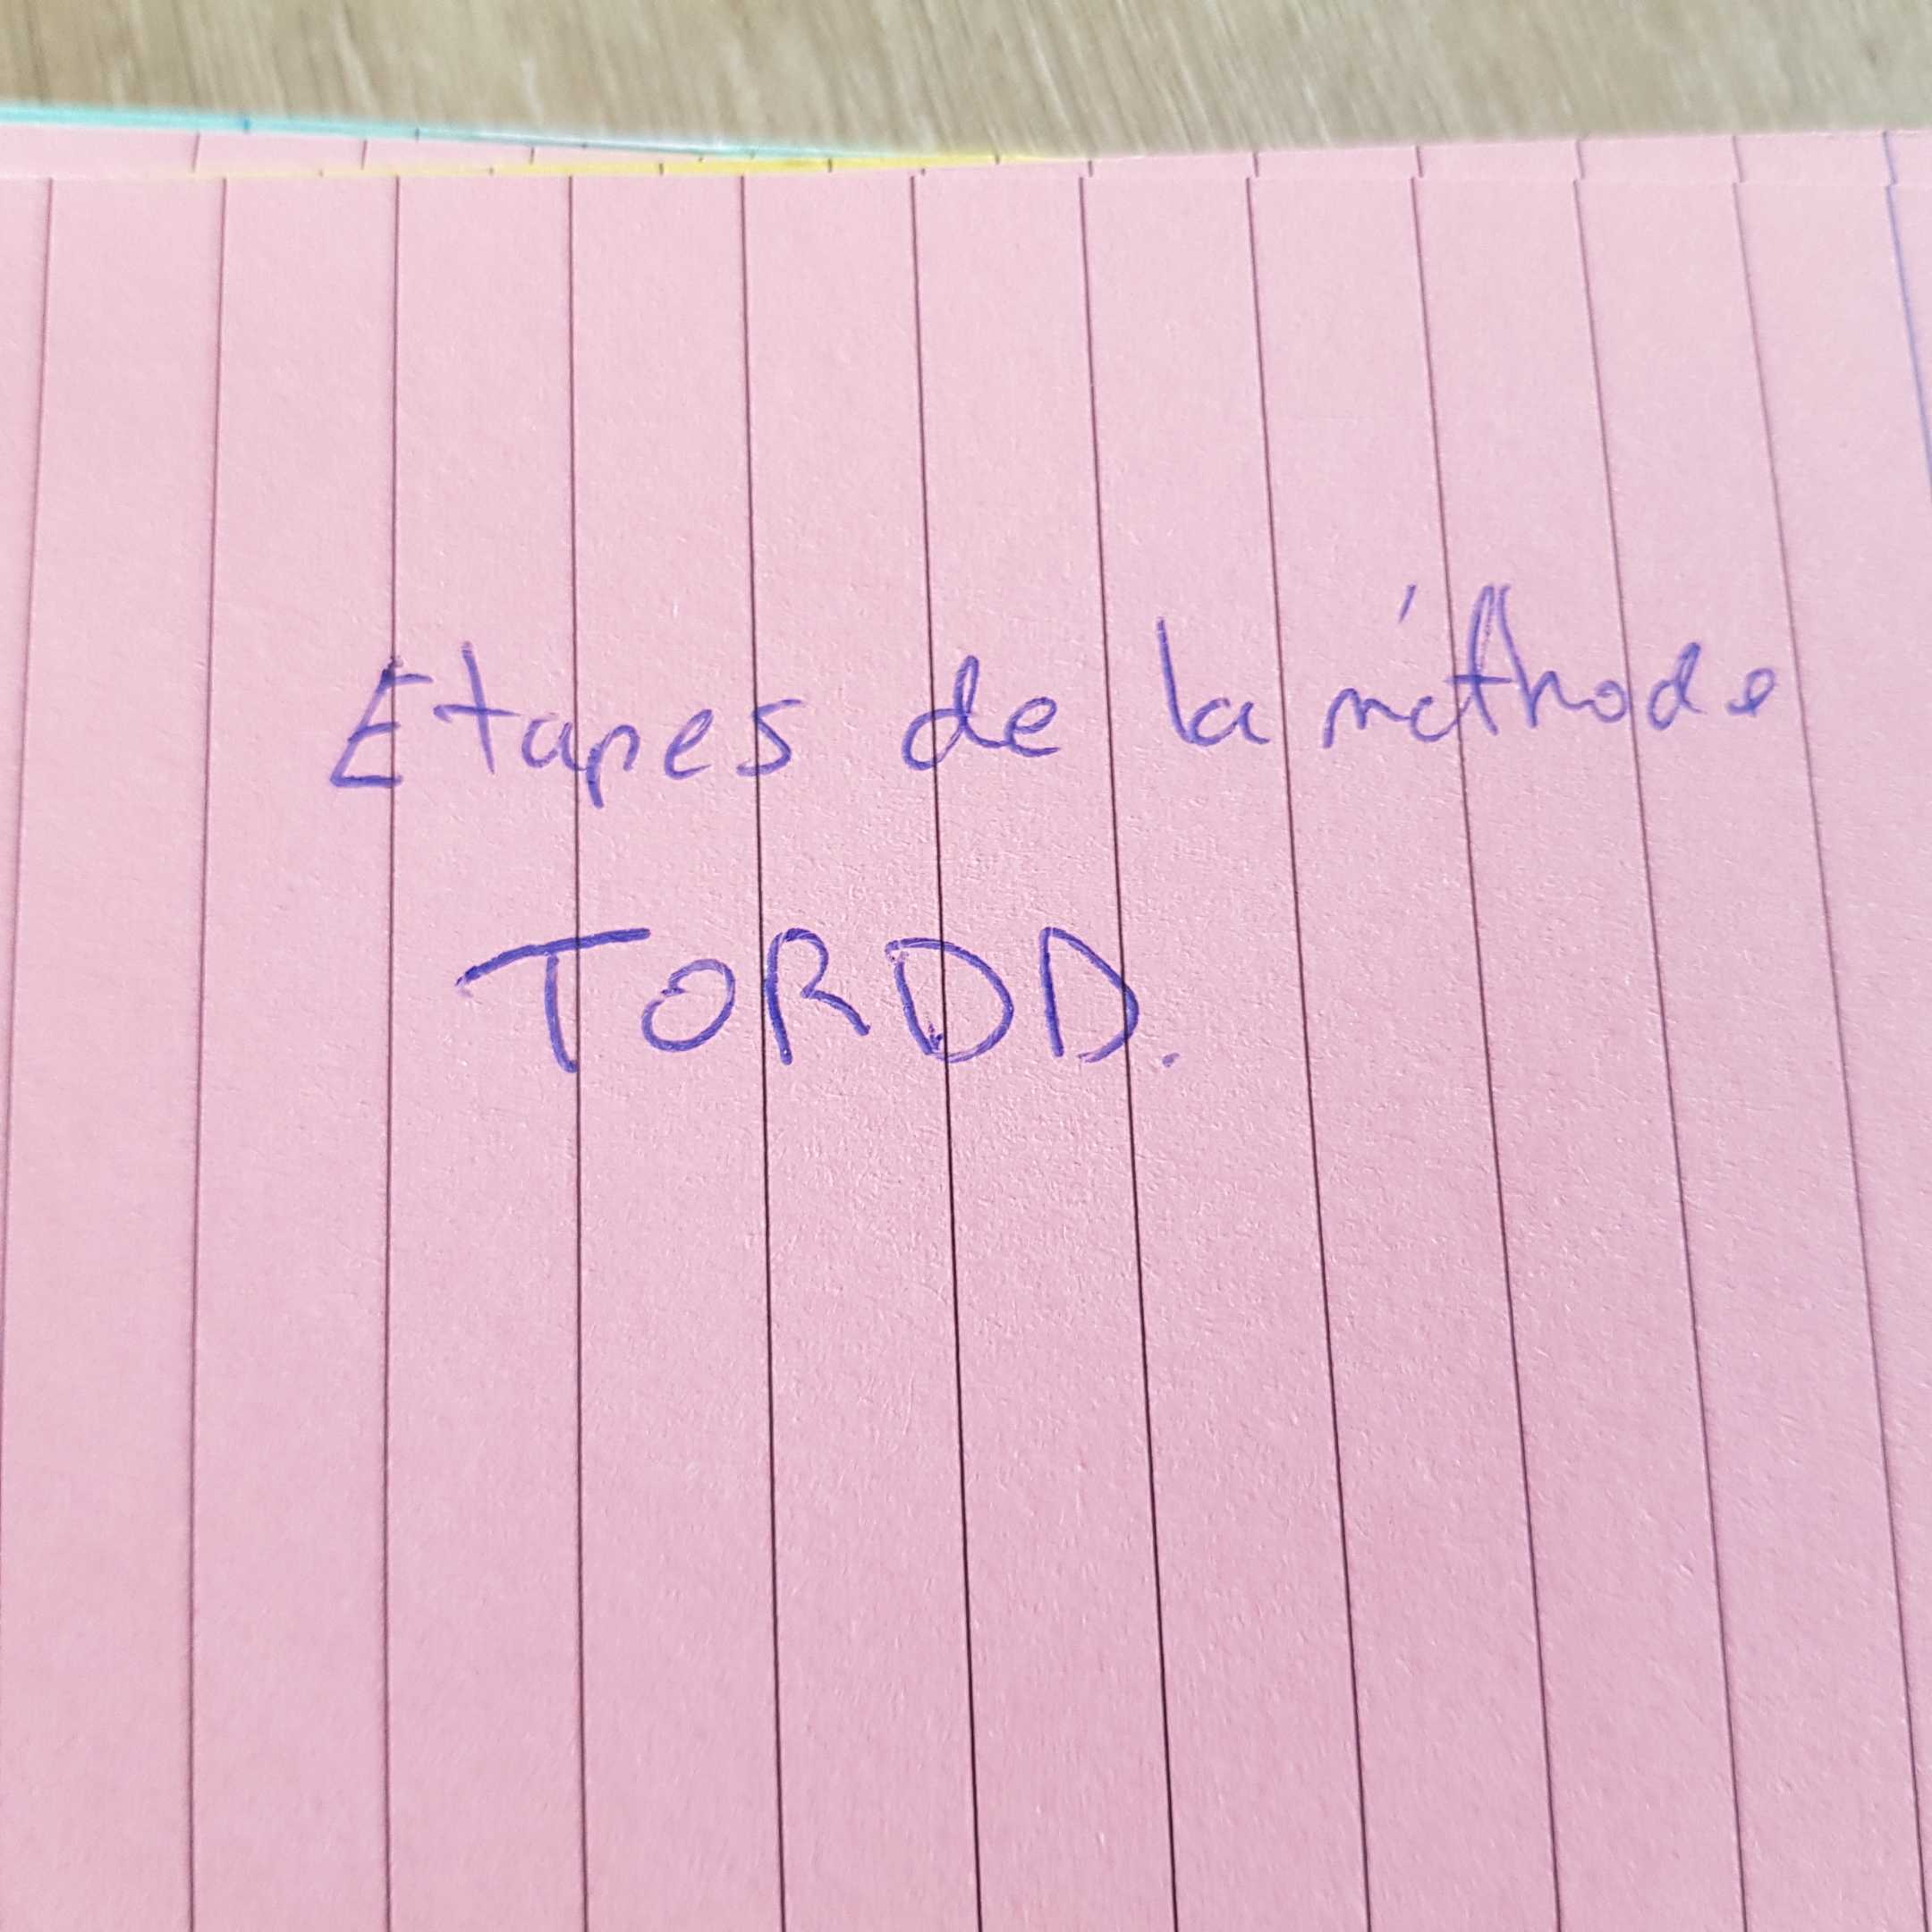 Etapes de la méthode
TORDD.